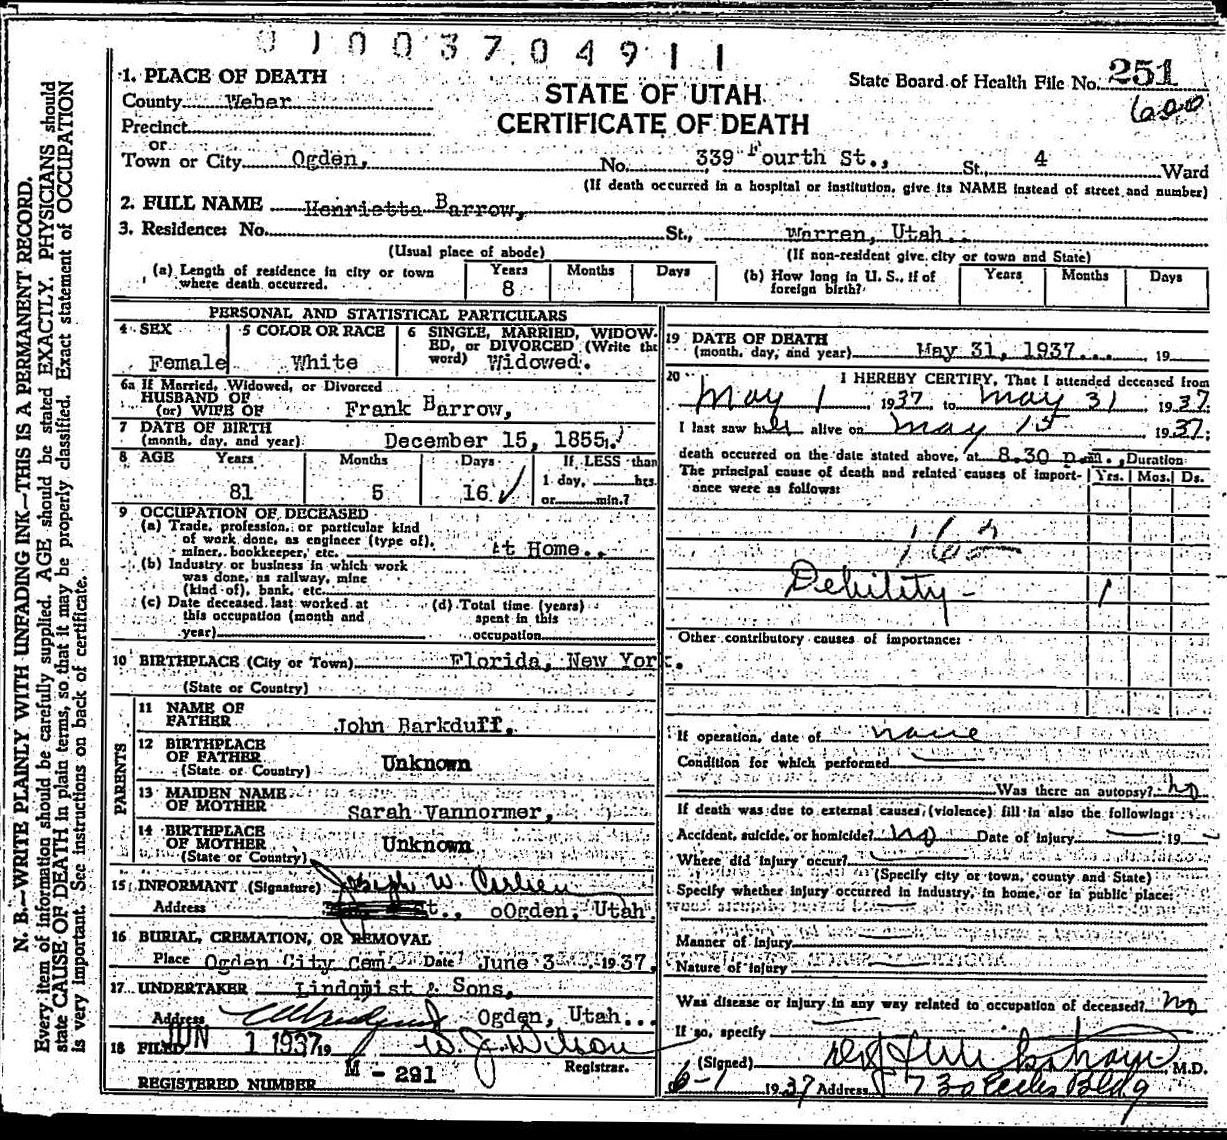 0100370491 1
1. PLACE OF DEATH
County Weber
Precinct
or
Town or City Ogden, No. 339 Fourth St., St., 4 Ward
STATE OF UTAH
CERTIFICATE OF DEATH
State Board of Health File No. 251
600
(If death occurred in a hospital or institution, give its NAME instead of street and number)
2. FULL NAME Henrietta Barrow,
3. Residence: No. St., Warren, Utah.
(Usual place of abode) (If non-resident give city or town and State)
(a) Length of residence in city or town where death occurred. Years 8 Months Days
(b) How long in U. S., if of foreign birth? Years Months Days
PERSONAL AND STATISTICAL PARTICULARS
4 SEX Female
5 COLOR OR RACE White
6 SINGLE, MARRIED, WIDOWED, or DIVORCED (Write the word) Widowed.
6a If Married, Widowed, or Divorced
HUSBAND OF
(or) WIFE OF Frank Barrow,
7 DATE OF BIRTH
(month, day, and year) December 15, 1855.
8 AGE Years 81 Months 5 Days 16
If LESS than
1 day, hrs.
or min.?
9 OCCUPATION OF DECEASED
(a) Trade, profession, or particular kind
of work done, as engineer (type of),
miner, bookkeeper, etc. At Home.
(b) Industry or business in which work
was done, as railway, mine
(kind of), bank, etc.
(c) Date deceased last worked at
this occupation (month and
year)
(d) Total time (years)
spent in this
occupation
10 BIRTHPLACE (City or Town) Florida, New York.
(State or Country)
PARENTS
11 NAME OF
FATHER John Barkduff.
12 BIRTHPLACE
OF FATHER Unknown
(State or Country)
13 MAIDEN NAME
OF MOTHER Sarah Vannormer,
14 BIRTHPLACE
OF MOTHER Unknown
(State or Country)
15 INFORMANT (Signature) Joseph W.
Address t., oOgden, Utah
16 BURIAL, CREMATION, OR REMOVAL
Place Ogden City Cem. Date June 3 1937.
17 UNDERTAKER Lindqmist & Sons,
Address Ogden, Utah...
18 FILED JUN 1 1937 19 W. J. Wilson
Registrar.
REGISTERED NUMBER M - 291
19 DATE OF DEATH
(month, day, and year) May 31, 1937... 19
20 I HEREBY CERTIFY, That I attended deceased from
May 1 1937, to May 31 1937.
I last saw her alive on May 15 1937;
death occurred on the date stated above, at 8.30 p.m. Duration
The principal cause of death and related causes of importance were as follows: Yrs. Mos. Ds.
162
Debility - 1
Other contributory causes of importance:
If operation, date of none
Condition for which performed
Was there an autopsy? no
If death was due to external causes (violence) fill in also the following:
Accident, suicide, or homicide? no Date of injury 19
Where did injury occur?
(Specify city or town, county and State)
Specify whether injury occurred in industry, in home, or in public place:
Manner of injury
Nature of injury
Was disease or injury in any way related to occupation of deceased? no
If so, specify
(Signed) M.D.
6-1 1937 Address 730 Eccles Bldg
N. B.—WRITE PLAINLY WITH UNFADING INK—THIS IS A PERMANENT RECORD.
Every item of information should be carefully supplied. AGE should be stated EXACTLY. PHYSICIANS should
state CAUSE OF DEATH in plain terms, so that it may be properly classified. Exact statement of OCCUPATION
is very important. See instructions on back of certificate.